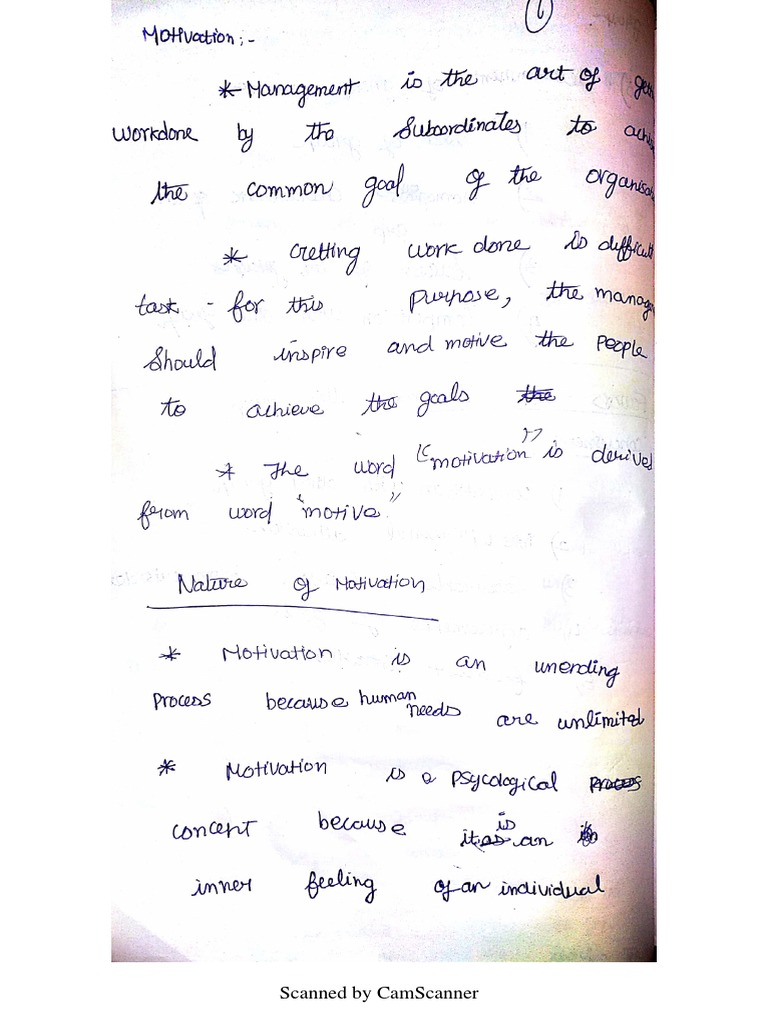 6
Motivation:-
* Management is the art of
Workdone by the Subordinates to
the common goal of the
* Getting work done is difficult
task - for this purpose, the
Should inspire and motive the People
to achieve the goals the
* The word "motivation" is
from word "motive"
Nature of Motivation
* Motivation is an unending
Process because human needs are unlimited
* Motivation is a Psycological Process
concept because it is an
inner feeling of an individual
Scanned by CamScanner